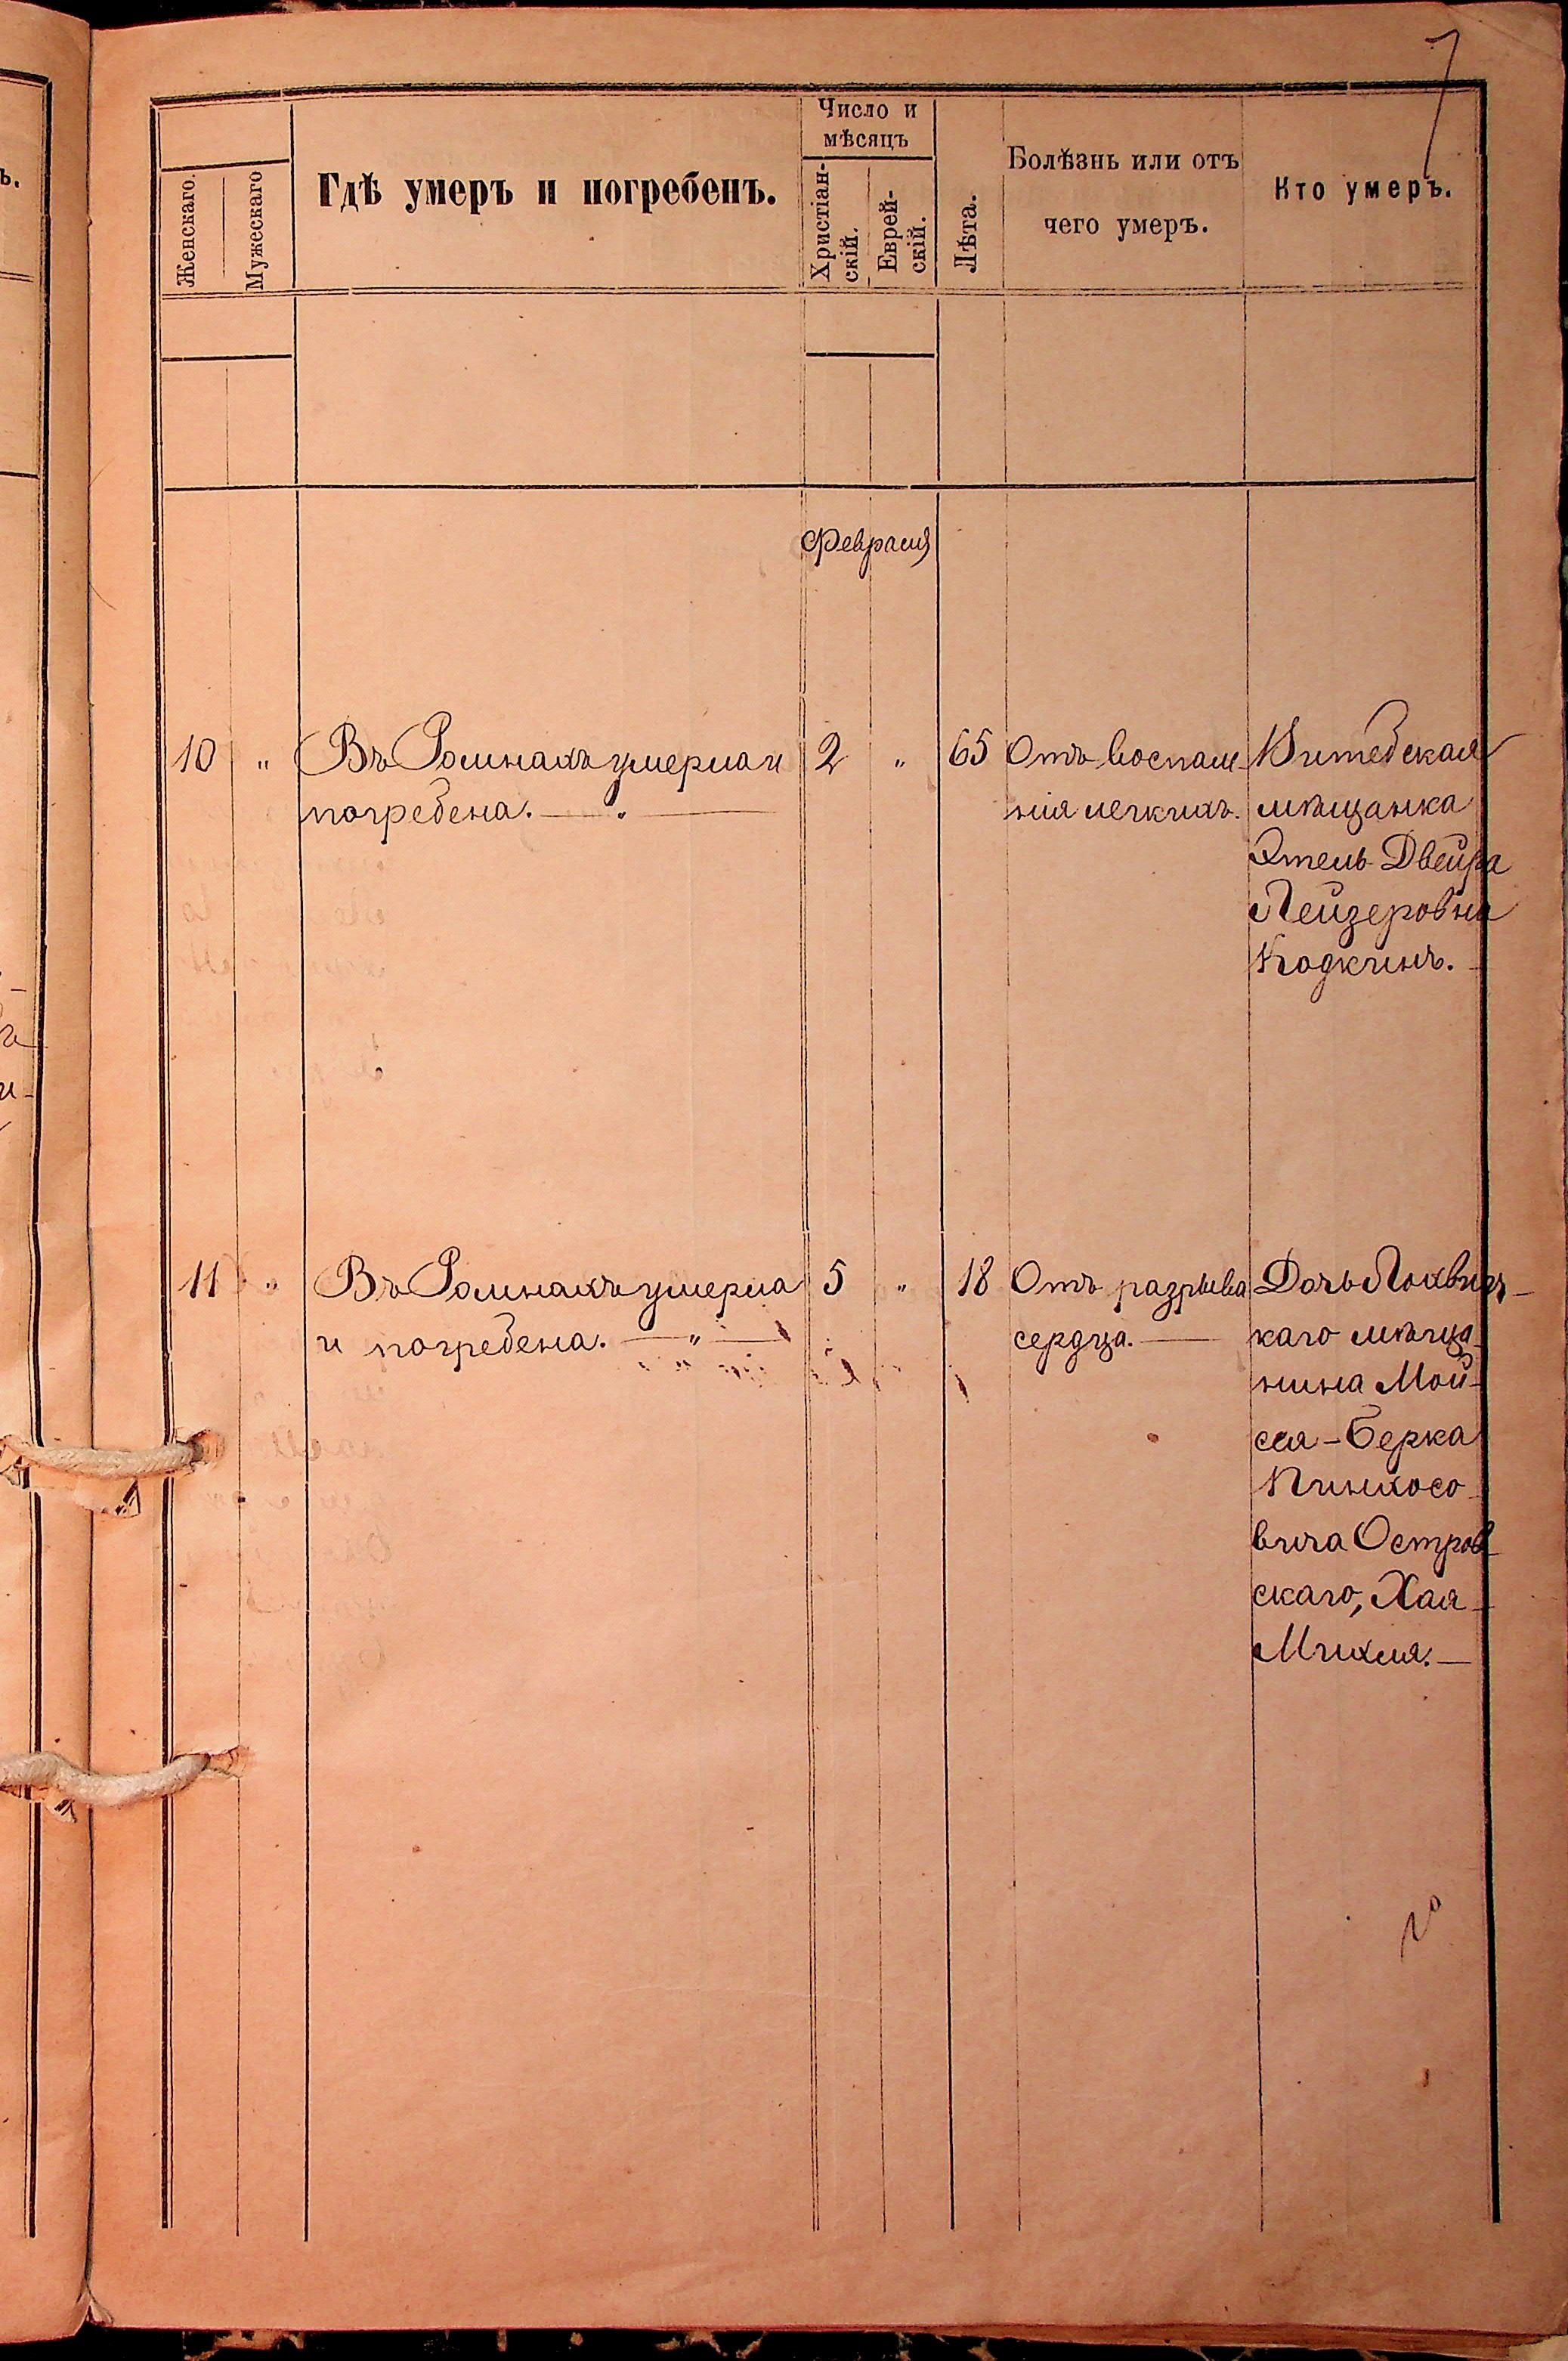 7
Женскаго.
Мужескаго
Гдѣ умеръ и погребенъ.
Число и
мѣсяцъ
Христіан-
скій.
Еврей-
скій.
Лѣта.
Болѣзнь или отъ
чего умеръ.
Кто умеръ.
Февраля
10 " Въ Ромнахъ умерла и
погребена.
2 " 65
Отъ воспале-
нія легкихъ.
Витебская
мѣщанка
Этель-Двейра
Лейзеровна
Кодкинъ.
11 " Въ Ромнахъ умерла
и погребена. — " —
5 " 18
Отъ разрыва
сердца.
Дочь Лохвиц-
каго мѣща-
нина Мой-
сея-Берка
Пинхосо-
вича Остров-
скаго, Хая-
Михля.